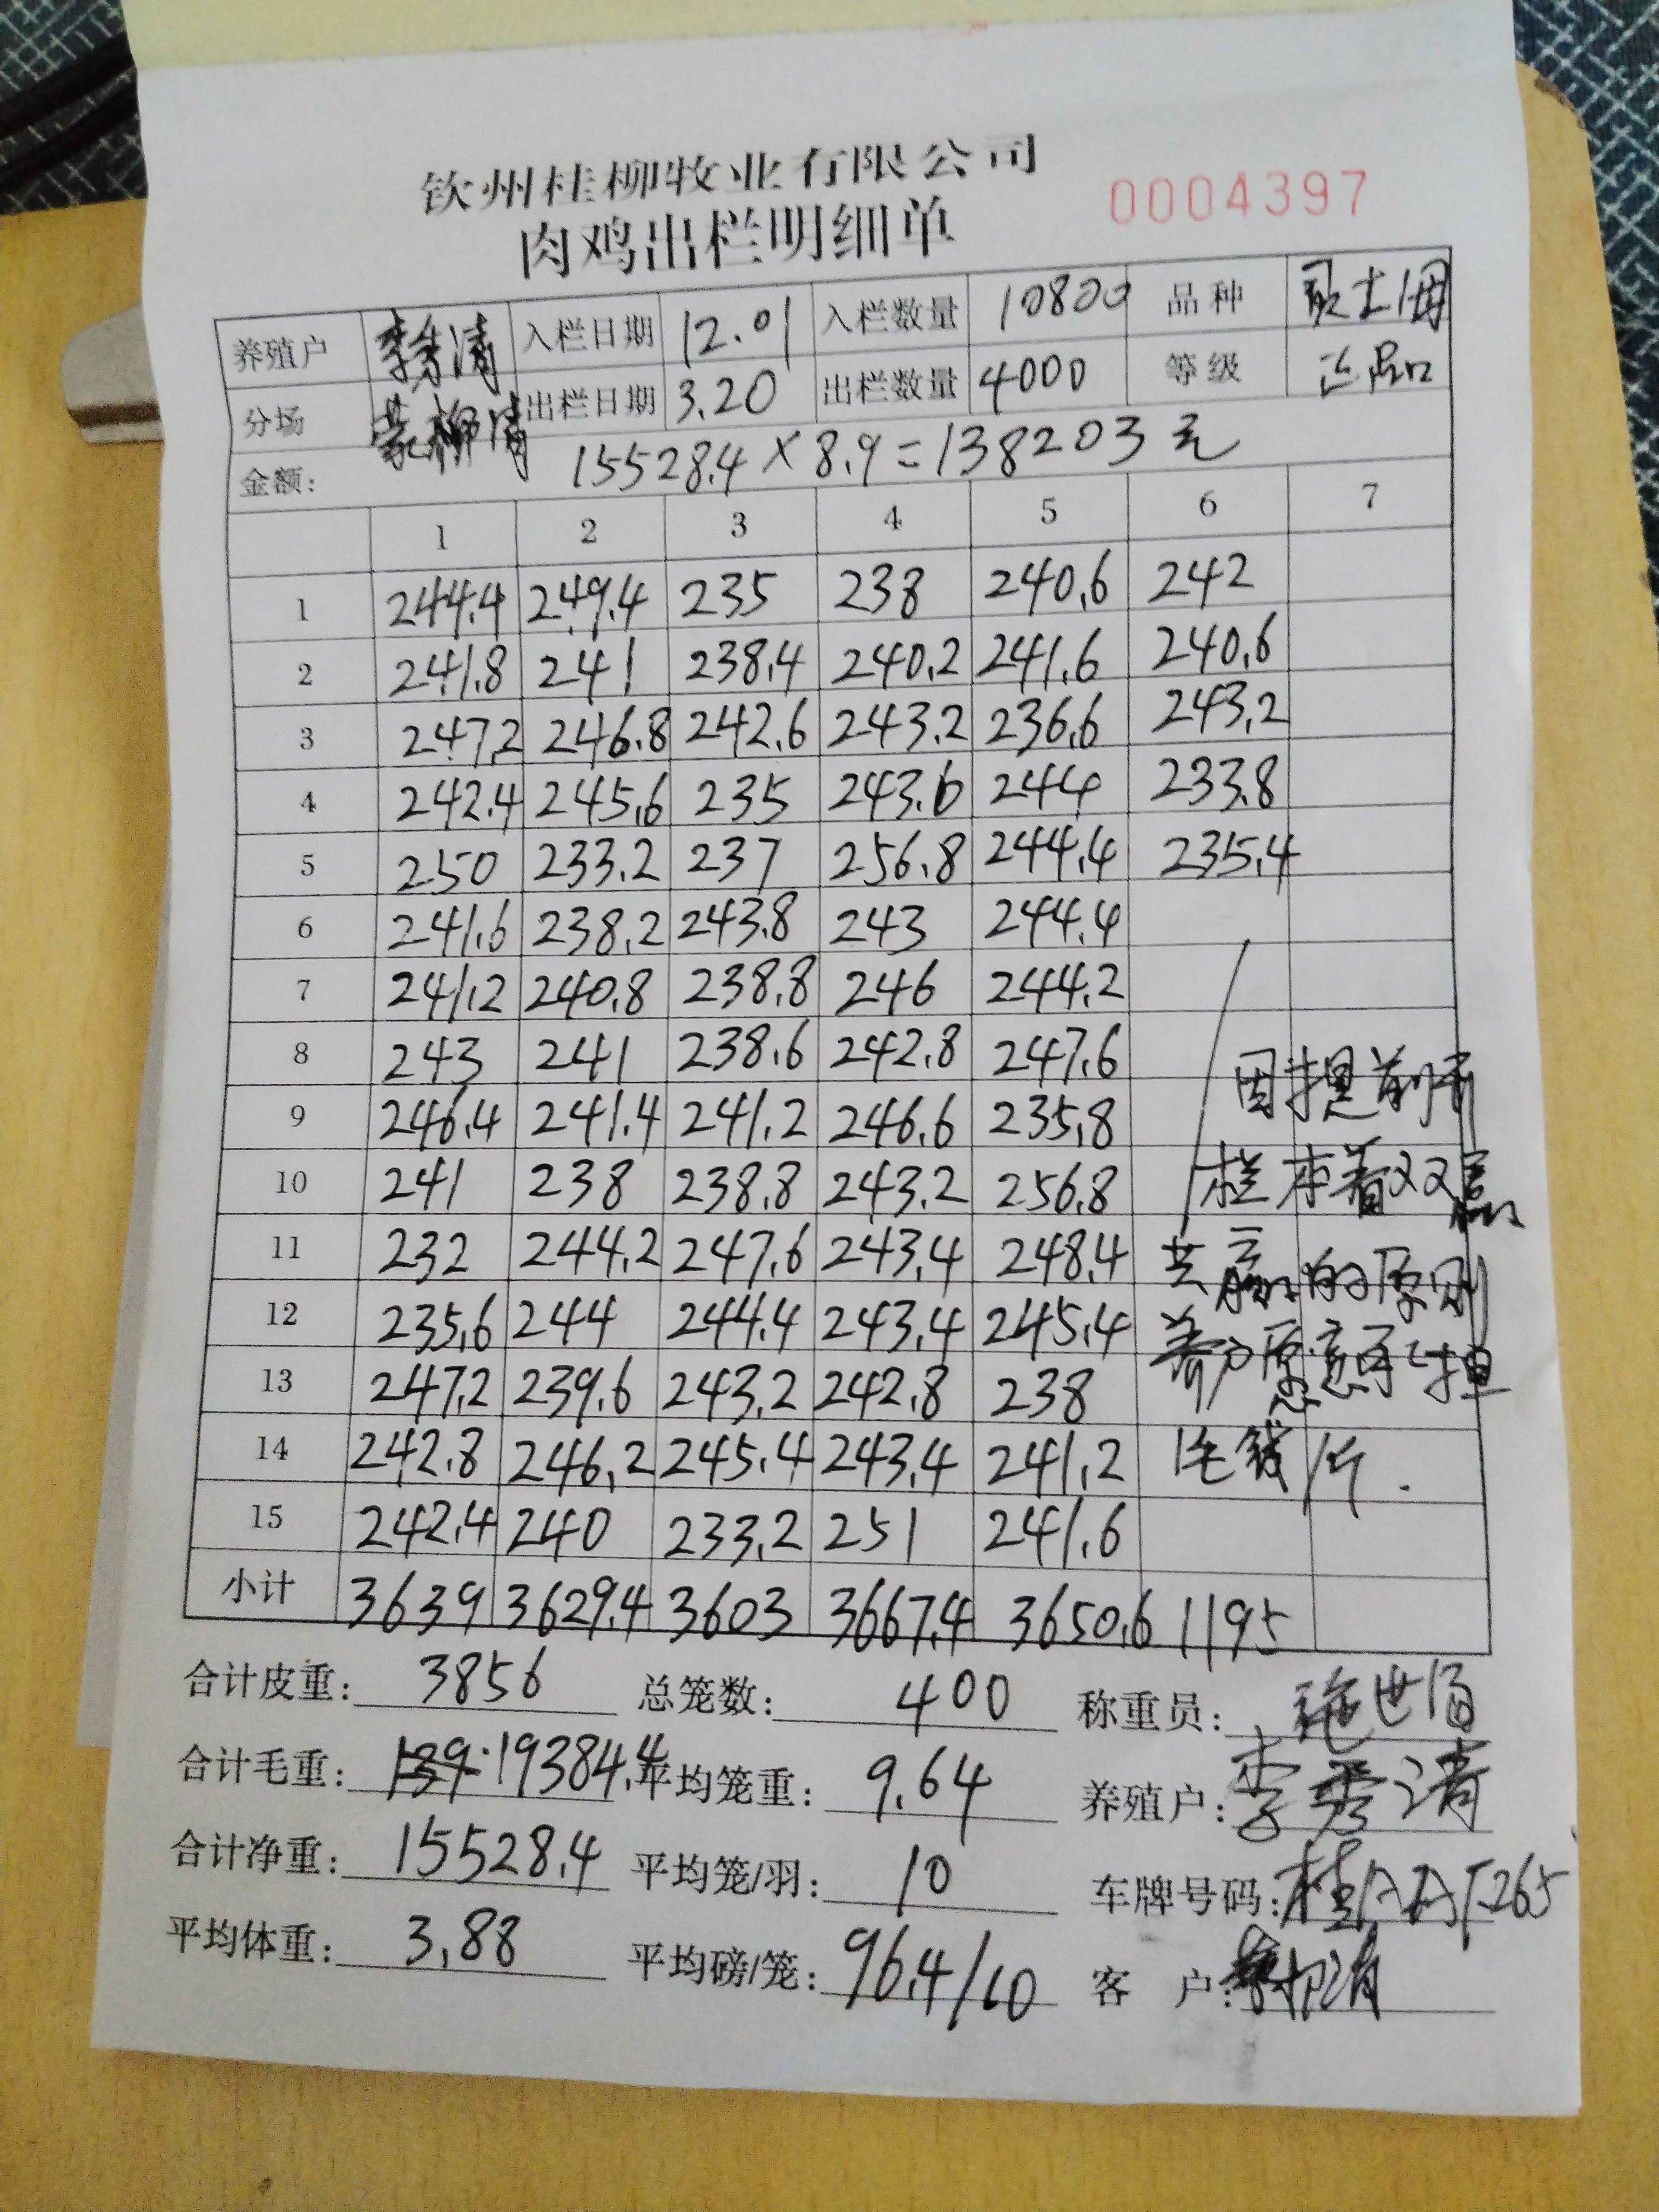 钦州桂柳牧业有限公司
肉鸡出栏明细单 0004397
养殖户 李秀清 入栏日期 12.01 入栏数量 10800 品种
分场 出栏日期 3.20 出栏数量 4000 等级 正品
金额: 15528.4×8.9=138203元
1 2 3 4 5 6 7
1 244.4 249.4 235 238 240.6 242
2 241.8 241 238.4 240.2 241.6 240.6
3 247.2 246.8 242.6 243.2 236.6 243.2
4 242.4 245.6 235 243.6 244 233.8
5 250 233.2 237 256.8 244.4 235.4
6 241.6 238.2 243.8 243 244.4
7 241.2 240.8 238.8 246 244.2
8 243 241 238.6 242.8 247.6
9 246.4 241.4 241.2 246.6 235.8
10 241 238 238.8 243.2 256.8
11 232 244.2 247.6 243.4 248.4
12 235.6 244 244.4 243.4 245.4
13 247.2 239.6 243.2 242.8 238
14 242.8 246.2 245.4 243.4 241.2
15 242.4 240 233.2 251 241.6
因提前
栏 本着双赢
共赢的原则
养户愿意
毛钱/斤.
小计 3639 3629.4 3603 3667.4 3650.6 1195
合计皮重: 3856 总笼数: 400 称重员:
合计毛重: 19384.4 平均笼重: 9.64 养殖户: 李秀清
合计净重: 15528.4 平均笼/羽: 10 车牌号码:
平均体重: 3.88 平均磅/笼: 96.4/10 客 户: